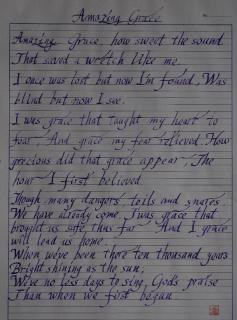 Amazing Grace
Amazing Grace, how sweet the sound
That saved a wretch like me.
I once was lost but now I'm found, Was
blind but now I see.
I was grace that taught my heart to
fear, And grace my fear relieved. How
precious did that grace appear, The
hour I first believed.
Though many dangers toils and snares.
We have already come, T'was grace that
brought us safe, thus far And I grace
will lead us home.
When we've been there ten thousand years
Bright shining as the sun;
We've no less days to sing God's praise
Than when we first began